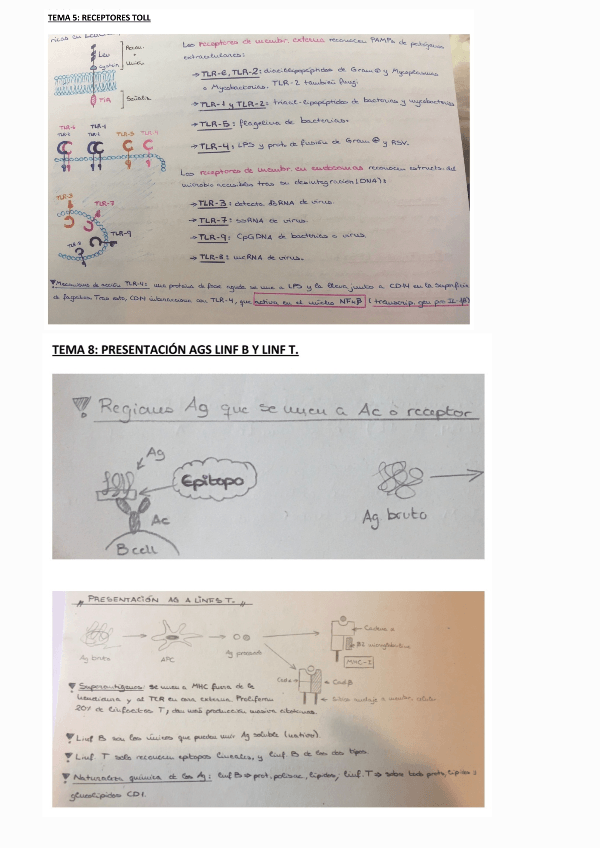 TEMA 5: RECEPTORES TOLL
Leu
cystein
TIR
Señaliz.
Los receptores de membr. externa reconocen PAMPs de patógenos
extracelulares:
→ TLR-6, TLR-2: diacillipopéptidos de Gram ⊕ y Mycoplasmas
o Mycobacterias. TLR-2 también fungi.
→ TLR-1 y TLR-2: triacil-lipopéptidos de bacterias y mycobacterias
→ TLR-5: flagelina de bacterias.
→ TLR-4: LPS y prot. de fusión de Gram ⊕ y RSV.
Los receptores de membr. en endosomas reconocen estruct. del
microbio accesibles tras su desintegración (DNA):
→ TLR-3: detecta dsRNA de virus.
→ TLR-7: ssRNA de virus.
→ TLR-9: CpGDNA de bacterias o virus.
→ TLR-8: RNA de virus.
TLR-5
TLR-4
TLR-3
TLR-7
TLR-9
Mecanismo de acción TLR-4: una proteína de fase aguda se une a LPS y la lleva junto a CD14 en la superficie
de fagocitos. Tras esto, CD14 interacciona con TLR-4, que activa en el núcleo NFκβ (transcrip. gen pro IL-1β)
TEMA 8: PRESENTACIÓN AGS LINF B Y LINF T.
Regiones Ag que se unen a Ac o receptor
Ag
Epítopo
Ac
B cell
Ag bruto
PRESENTACIÓN AG A LINFS T.
Ag bruto
APC
Ag procesado
Cadena α
β2 microglobulina
MHC-I
Cad α
Cad β
Superantígenos: se unen a MHC fuera de la
hendidura y al TCR en cara externa. Proliferan
20% de linfocitos T, dan una producción masiva citocinas.
Linf B son los únicos que pueden unir Ag soluble (nativo).
Linf. T solo reconocen epítopos lineales, y linf. B de los dos tipos
Naturaleza química de los Ag: linf B ⇒ prot, polisac, lípidos; linf. T ⇒ sobre todo prots, lípidos y
glucolípidos CD1.